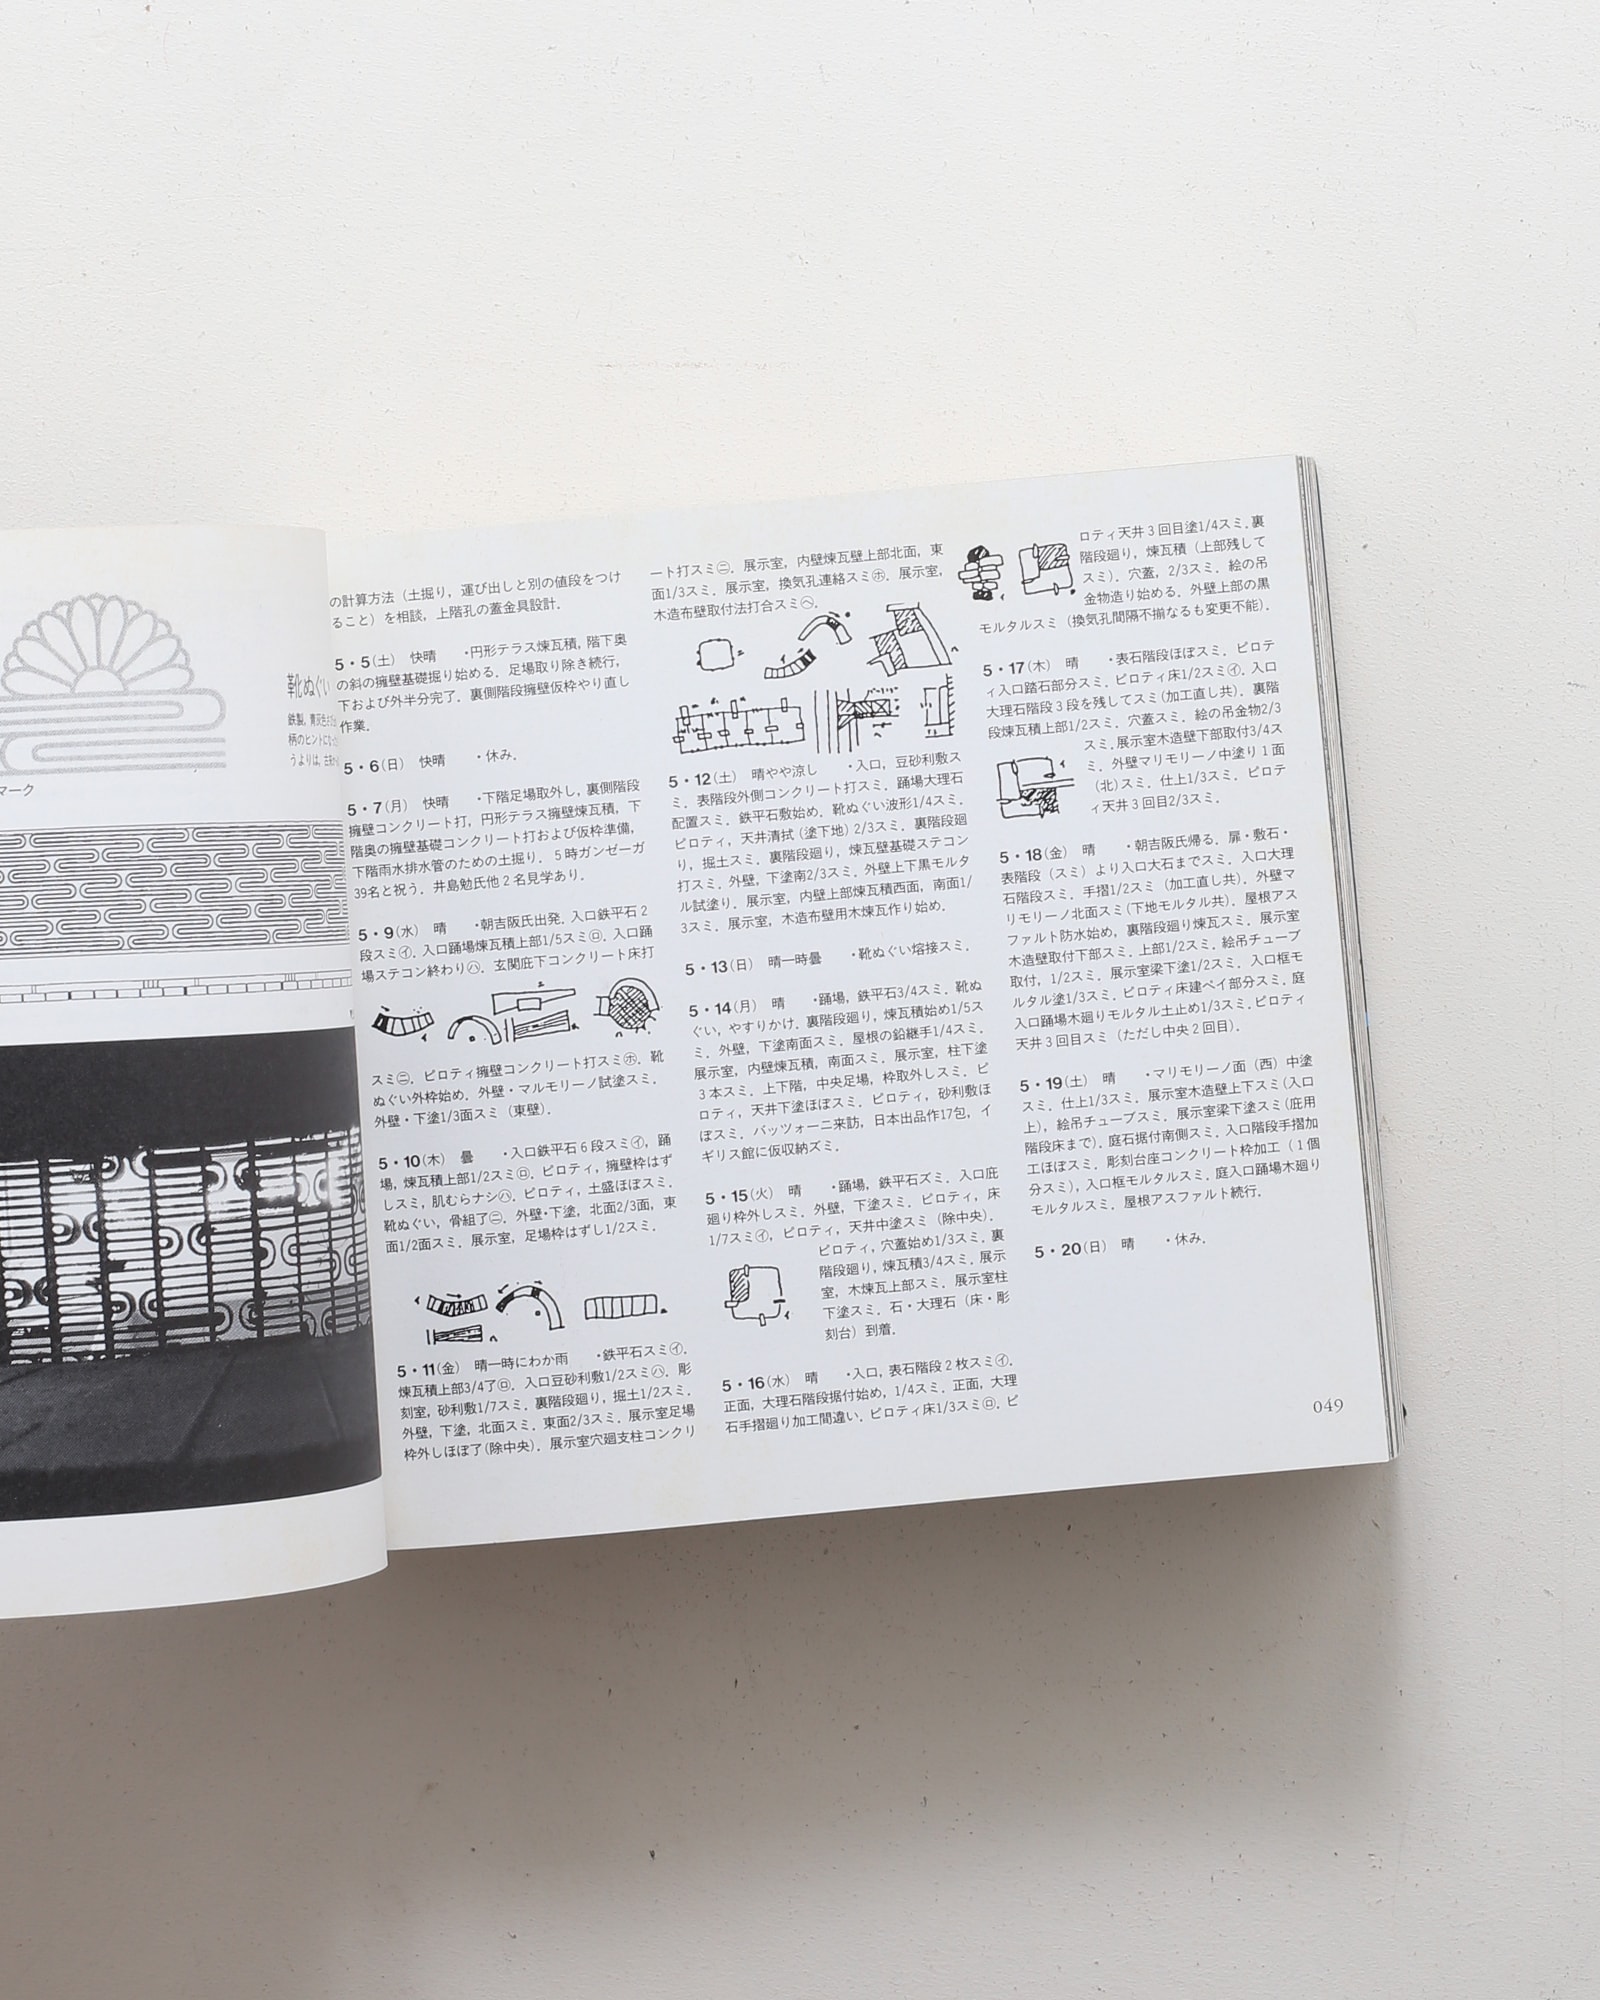 マーク
の計算方法（土掘り，運び出しと別の値段をつけ
ること）を相談，上階孔の蓋金具設計．
5・5(土)　快晴　・円形テラス煉瓦積，階下奥
の斜の擁壁基礎掘り始める．足場取り除き続行，
下および外半分完了．裏側階段擁壁仮枠やり直し
作業．
5・6(日)　快晴　・休み．
5・7(月)　快晴　・下階足場取外し，裏側階段
擁壁コンクリート打，円形テラス擁壁煉瓦積，下
階奥の擁壁基礎コンクリート打および仮枠準備，
下階雨水排水管のための土掘り．5時ガンゼーガ
39名と祝う．井島勉氏他2名見学あり．
5・9(水)　晴　・朝吉阪氏出発．入口鉄平石2
段スミ㋑．入口踊場煉瓦積上部1/5スミ㋺．入口踊
場ステコン終わり㋩．玄関庇下コンクリート床打
スミ㋥．ピロティ擁壁コンクリート打スミ㋭．靴
ぬぐい外枠始め．外壁・マルモリーノ試塗スミ．
外壁・下塗1/3面スミ（東壁）．
5・10(木)　曇　・入口鉄平石6段スミ㋑，踊
場，煉瓦積上部1/2スミ㋺．ピロティ，擁壁枠はず
しスミ，肌むらナシ㋩．ピロティ，土盛ほぼスミ．
靴ぬぐい，骨組了㋥．外壁・下塗，北面2/3面，東
面1/2面スミ．展示室，足場枠はずし1/2スミ．
5・11(金)　晴一時にわか雨　・鉄平石スミ㋑．
煉瓦積上部3/4了㋺．入口豆砂利敷1/2スミ㋩．彫
刻室，砂利敷1/7スミ．裏階段廻り，掘土1/2スミ．
外壁，下塗，北面スミ．東面2/3スミ．展示室足場
枠外しほぼ了(除中央)．展示室穴廻支柱コンクリ
ート打スミ㋥．展示室，内壁煉瓦壁上部北面，東
面1/3スミ．展示室，換気孔連絡スミ㋭．展示室，
木造布壁取付法打合スミ㋬．
5・12(土)　晴やや涼し　・入口，豆砂利敷ス
ミ．表階段外側コンクリート打スミ．踊場大理石
配置スミ．鉄平石敷始め．靴ぬぐい波形1/4スミ．
ピロティ，天井清拭(塗下地)2/3スミ．裏階段廻
り，掘土スミ．裏階段廻り，煉瓦壁基礎ステコン
打スミ．外壁，下塗南2/3スミ．外壁上下黒モルタ
ル試塗り．展示室，内壁上部煉瓦積西面，南面1/
3スミ．展示室，木造布壁用木煉瓦作り始め．
5・13(日)　晴一時曇　・靴ぬぐい熔接スミ．
5・14(月)　晴　・踊場，鉄平石3/4スミ．靴ぬ
ぐい，やすりかけ．裏階段廻り，煉瓦積始め1/5ス
ミ．外壁，下塗南面スミ．屋根の鉛継手1/4スミ．
展示室，内壁煉瓦積，南面スミ．展示室，柱下塗
3本スミ．上下階，中央足場，枠取外しスミ．ピ
ロティ，天井下塗ほぼスミ．ピロティ，砂利敷ほ
ぼスミ．バッツォーニ来訪，日本出品作17包，イ
ギリス館に仮収納ズミ．
5・15(火)　晴　・踊場，鉄平石ズミ．入口庇
廻り枠外しスミ．外壁，下塗スミ．ピロティ，床
1/7スミ㋑，ピロティ，天井中塗スミ（除中央）．
ピロティ，穴蓋始め1/3スミ．裏
階段廻り，煉瓦積3/4スミ．展示
室，木煉瓦上部スミ．展示室柱
下塗スミ．石・大理石（床・彫
刻台）到着．
5・16(水)　晴　・入口，表石階段2枚スミ㋑．
正面，大理石階段据付始め，1/4スミ．正面，大理
石手摺廻り加工間違い．ピロティ床1/3スミ㋺．ピ
ロティ天井3回目塗1/4スミ．裏
階段廻り，煉瓦積（上部残して
スミ）．穴蓋，2/3スミ．絵の吊
金物造り始める．外壁上部の黒
モルタルスミ（換気孔間隔不揃なるも変更不能）．
5・17(木)　晴　・表石階段ほぼスミ．ピロテ
ィ入口踏石部分スミ．ピロティ床1/2スミ㋑．入口
大理石階段3段を残してスミ(加工直し共)．裏階
段煉瓦積上部1/2スミ．穴蓋スミ．絵の吊金物2/3
スミ．展示室木造壁下部取付3/4ス
ミ．外壁マリモリーノ中塗り1面
（北)スミ．仕上1/3スミ．ピロテ
ィ天井3回目2/3スミ．
5・18(金)　晴　・朝吉阪氏帰る．扉・敷石・
表階段（スミ）より入口大石までスミ．入口大理
石階段スミ．手摺1/2スミ（加工直し共)．外壁マ
リモリーノ北面スミ(下地モルタル共)．屋根アス
ファルト防水始め，裏階段廻り煉瓦スミ．展示室
木造壁取付下部スミ．上部1/2スミ．絵吊チューブ
取付，1/2スミ．展示室梁下塗1/2スミ．入口框モ
ルタル塗1/3スミ．ピロティ床建ペイ部分スミ．庭
入口踊場木廻りモルタル土止め1/3スミ．ピロティ
天井3回目スミ（ただし中央2回目)．
5・19(土)　晴　・マリモリーノ面（西）中塗
スミ．仕上1/3スミ．展示室木造壁上下スミ(入口
上)，絵吊チューブスミ．展示室梁下塗スミ(庇用
階段床まで)．庭石据付南側スミ．入口階段手摺加
工ほぼスミ．彫刻台座コンクリート枠加工（1個
分スミ)，入口框モルタルスミ．庭入口踊場木廻り
モルタルスミ．屋根アスファルト続行．
5・20(日)　晴　・休み．
049